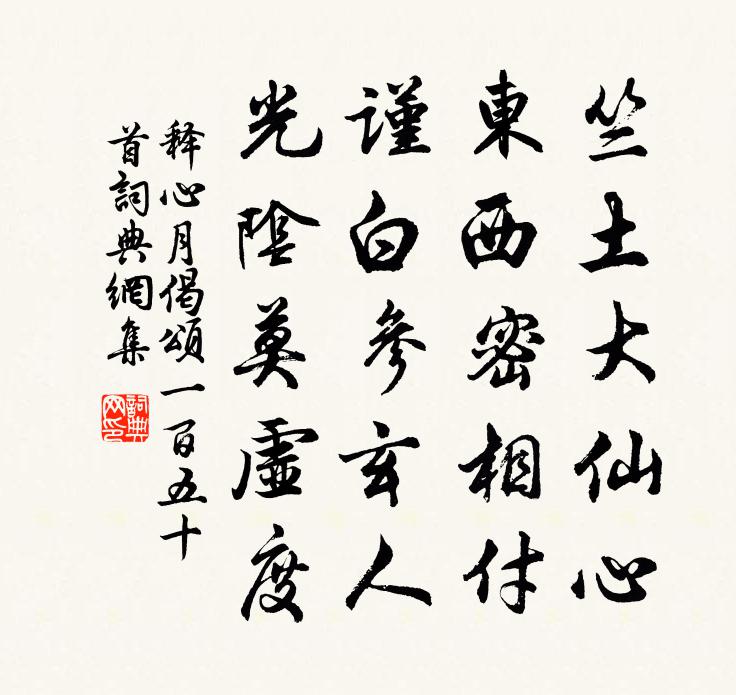 竺土大仙心
東西密相付
謹白參玄人
光陰莫虛度
释心月偈頌一百五十
首詞典網集
詞典网印